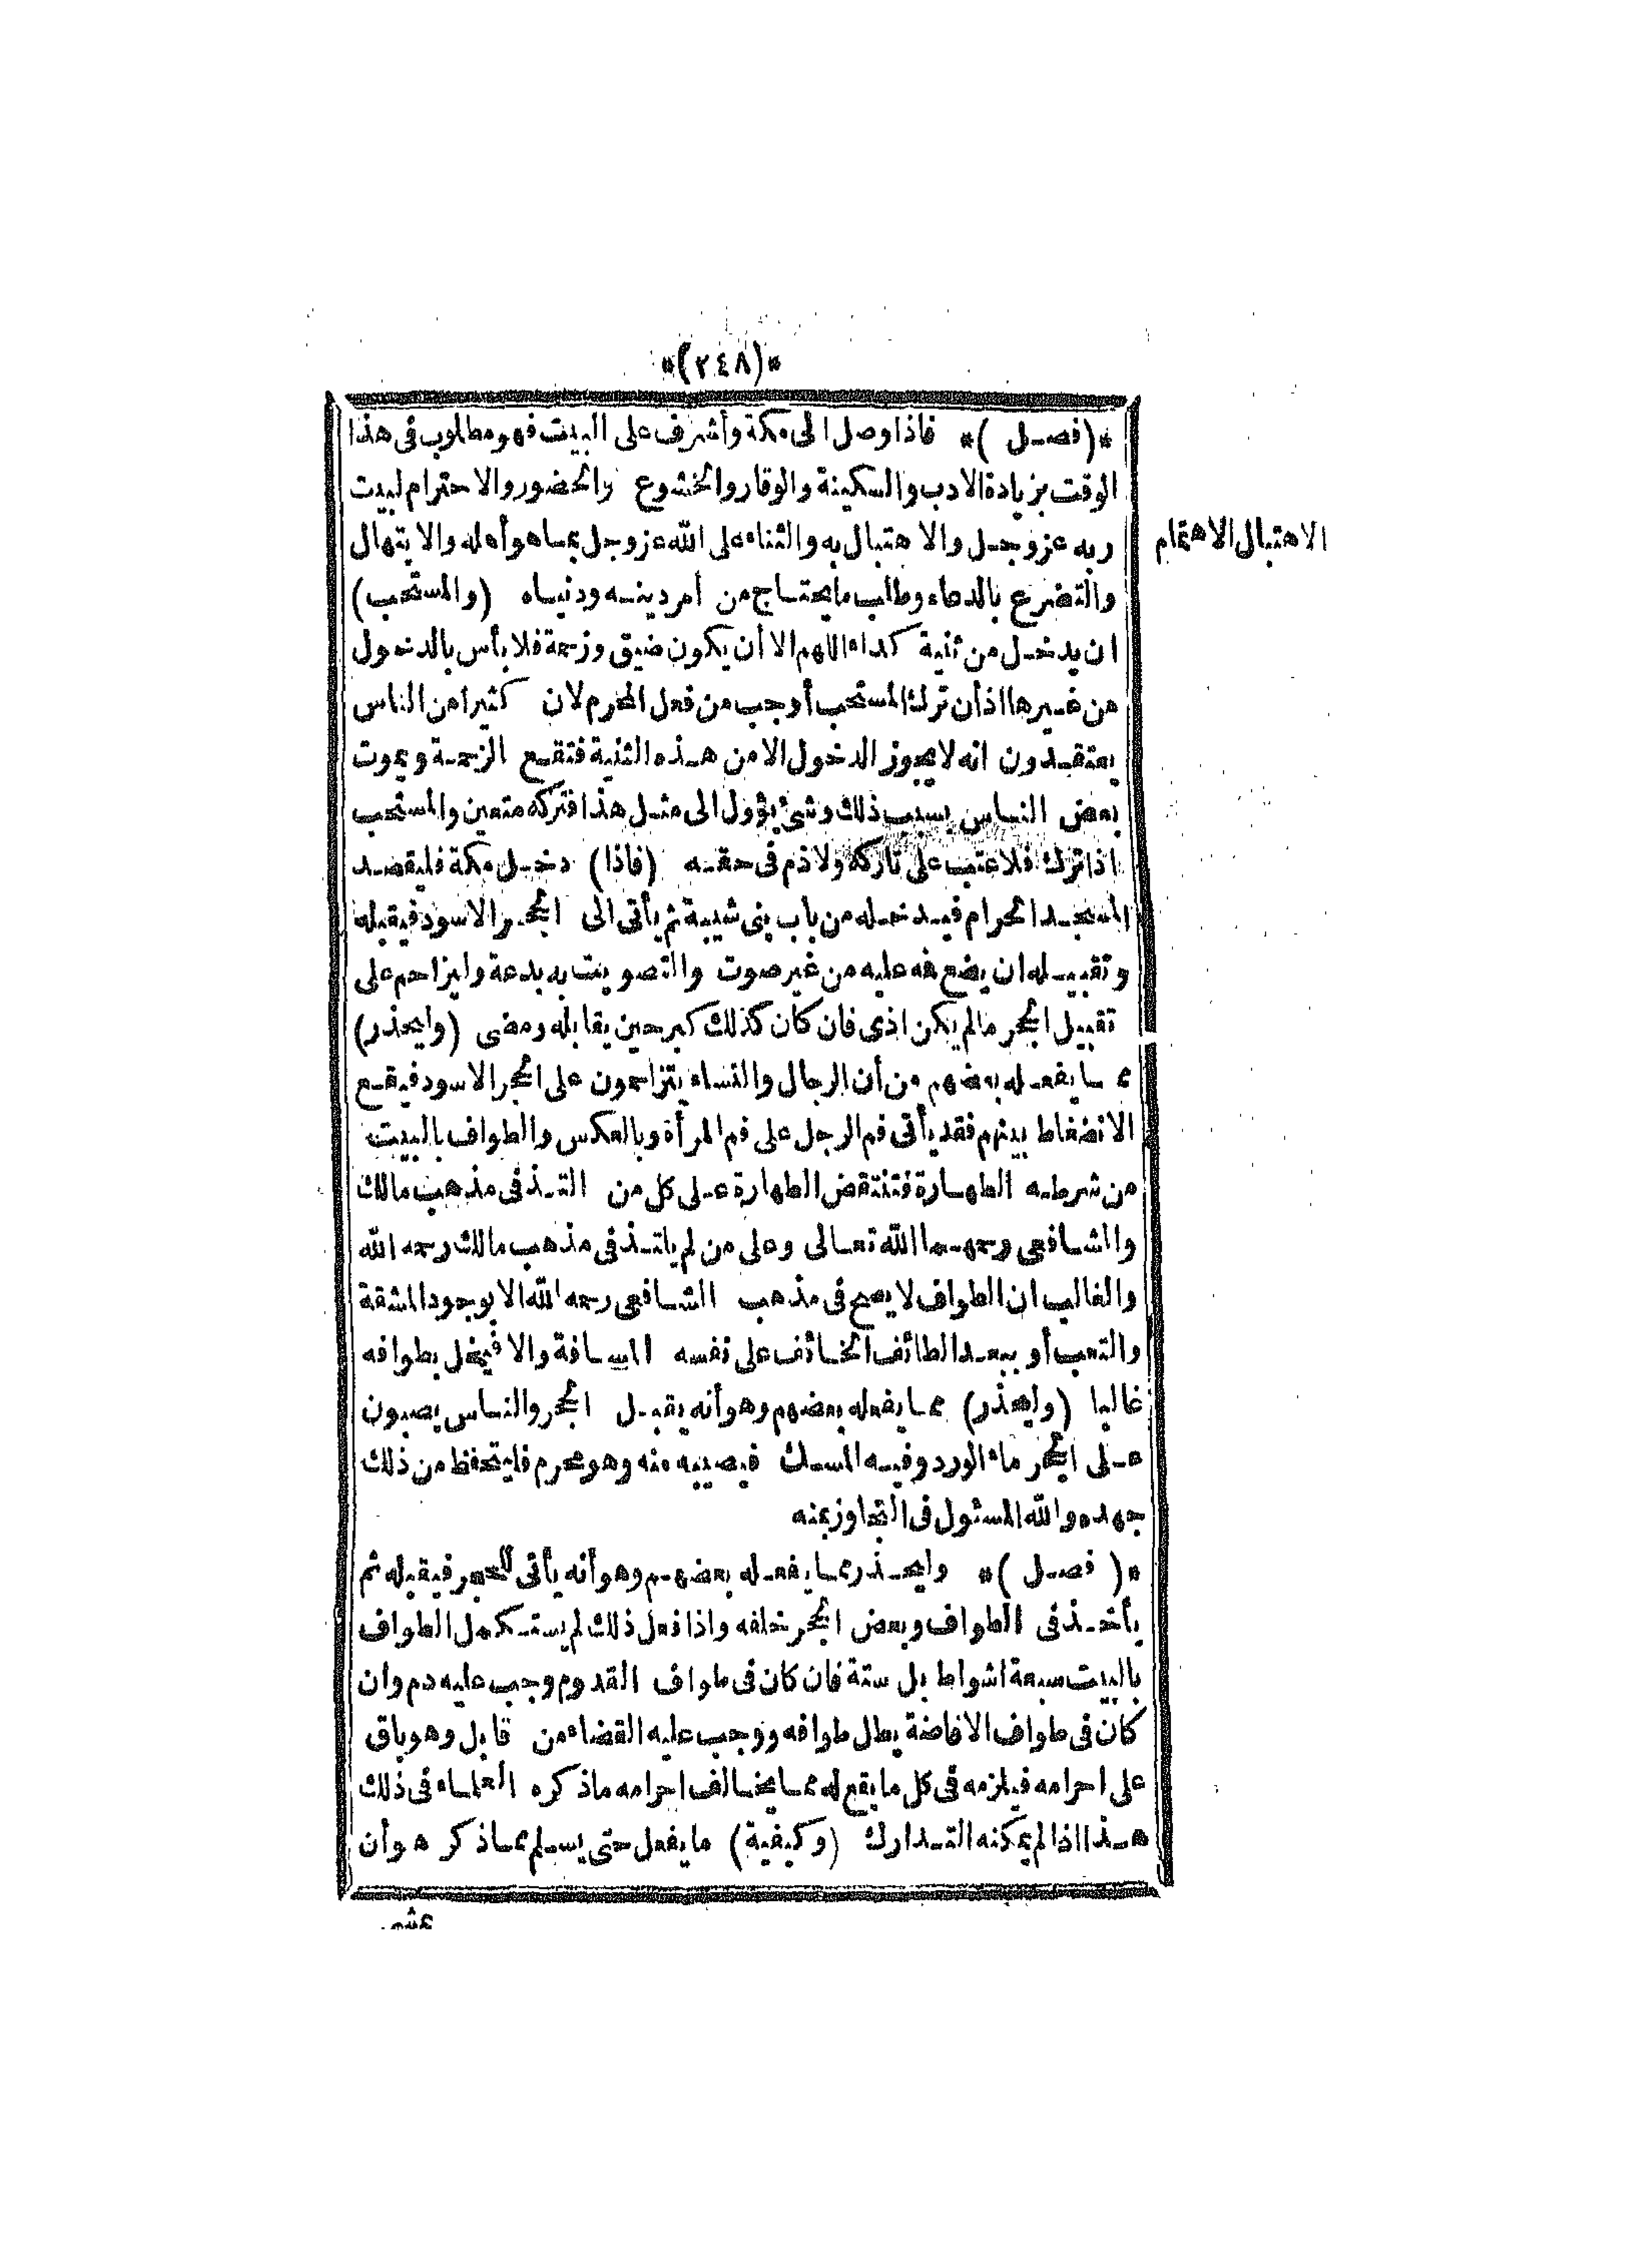 *(٢٤٨)*
*(فصل)* فاذا وصل الى مكة وأشرف على البيت فهو مطلوب فى هذا
الوقت بزيادة الادب والسكينة والوقار والخشوع والحضور والاحترام لبيت
ربه عز وجل والاهتبال به والثناء على الله عز وجل بما هو أهله والابتهال
الاهتبال الاهتمام
والتضرع بالدعاء وطلب ما يحتاج من أمر دينه ودنياه (والمستحب)
ان يدخل من ثنية كداء اللهم الا أن يكون ضيق وزحمة فلا بأس بالدخول
من غيرها اذ أن ترك المستحب أوجب من فعل المحرم لان كثيرا من الناس
يعتقدون انه لا يجوز الدخول الا من هذه الثنية فتقع الزحمة ويموت
بعض الناس بسبب ذلك وشئ يؤول الى مثل هذا فتركه متعين والمستحب
اذا ترك فلا عتب على تاركه ولا ذم فى حقه (فاذا) دخل مكة فليقصد
المسجد الحرام فيدخله من باب بنى شيبة ثم يأتى الى الحجر الاسود فيقبله
وتقبيله ان يضع فمه عليه من غير صوت والتصويت به بدعة وليزاحم على
تقبيل الحجر مالم يكن اذى فان كان كذلك كبر حين يقابله ومضى (وليحذر)
مما يفعله بعضهم من أن الرجال والنساء يتزاحمون على الحجر الاسود فيقع
الانضغاط بينهم فقد يأتى فم الرجل على فم المرأة وبالعكس والطواف بالبيت
من شرطه الطهارة فتنتقض الطهارة على كل من التذ فى مذهب مالك
والشافعى رحمهما الله تعالى وعلى من لم يلتذ فى مذهب مالك رحمه الله
والغالب ان الطواف لا يصح فى مذهب الشافعى رحمه الله الا بوجود المشقة
والتعب أو ببعد الطائف الخائف على نفسه المسافة والا فيخل بطوافه
غالبا (وليحذر) مما يفعله بعضهم وهو أنه يقبل الحجر والناس يصبون
على الحجر ماء الورد وفيه المسك فيصيبه منه وهو محرم فليتحفظ من ذلك
جهده والله المسئول فى التجاوز بمنه
*(فصل)* وليحذر مما يفعله بعضهم وهو أنه يأتى للحجر فيقبله ثم
يأخذ فى الطواف وبعض الحجر خلفه واذا فعل ذلك لم يستكمل الطواف
بالبيت سبعة اشواط بل ستة فان كان فى طواف القدوم وجب عليه دم وان
كان فى طواف الافاضة بطل طوافه ووجب عليه القضاء من قابل وهو باق
على احرامه فيلزمه فى كل ما يقع له مما يخالف احرامه ماذكره العلماء فى ذلك
هذا اذا لم يمكنه التدارك (وكيفية) ما يفعل حتى يسلم مما ذكر هو أن